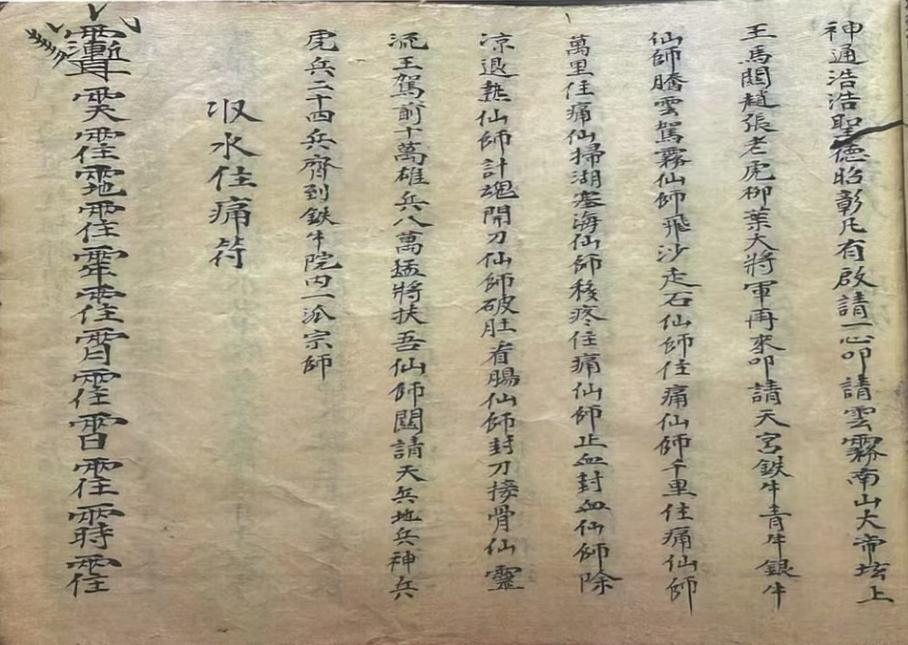 神通浩浩聖德昭彰凡有啟請一心叩請雲霧南山大帝坛上
王馬関趙張老虎柳葉大將軍再來叩請天宮鉄牛青牛銀牛
仙師騰雲駕霧仙師飛沙走石仙師住痛仙師千里住痛仙師
萬里住痛仙掃湖塞海仙師移疼住痛仙師止血封血仙師除
凉退熱仙師計魂開刀仙師破肚看腸仙師封刀接骨仙靈
流王駕前十萬雄兵八萬猛將扶吾仙師関請天兵地兵神兵
虎兵二十四兵齊到鉄牛院內一派宗師
収水住痛符